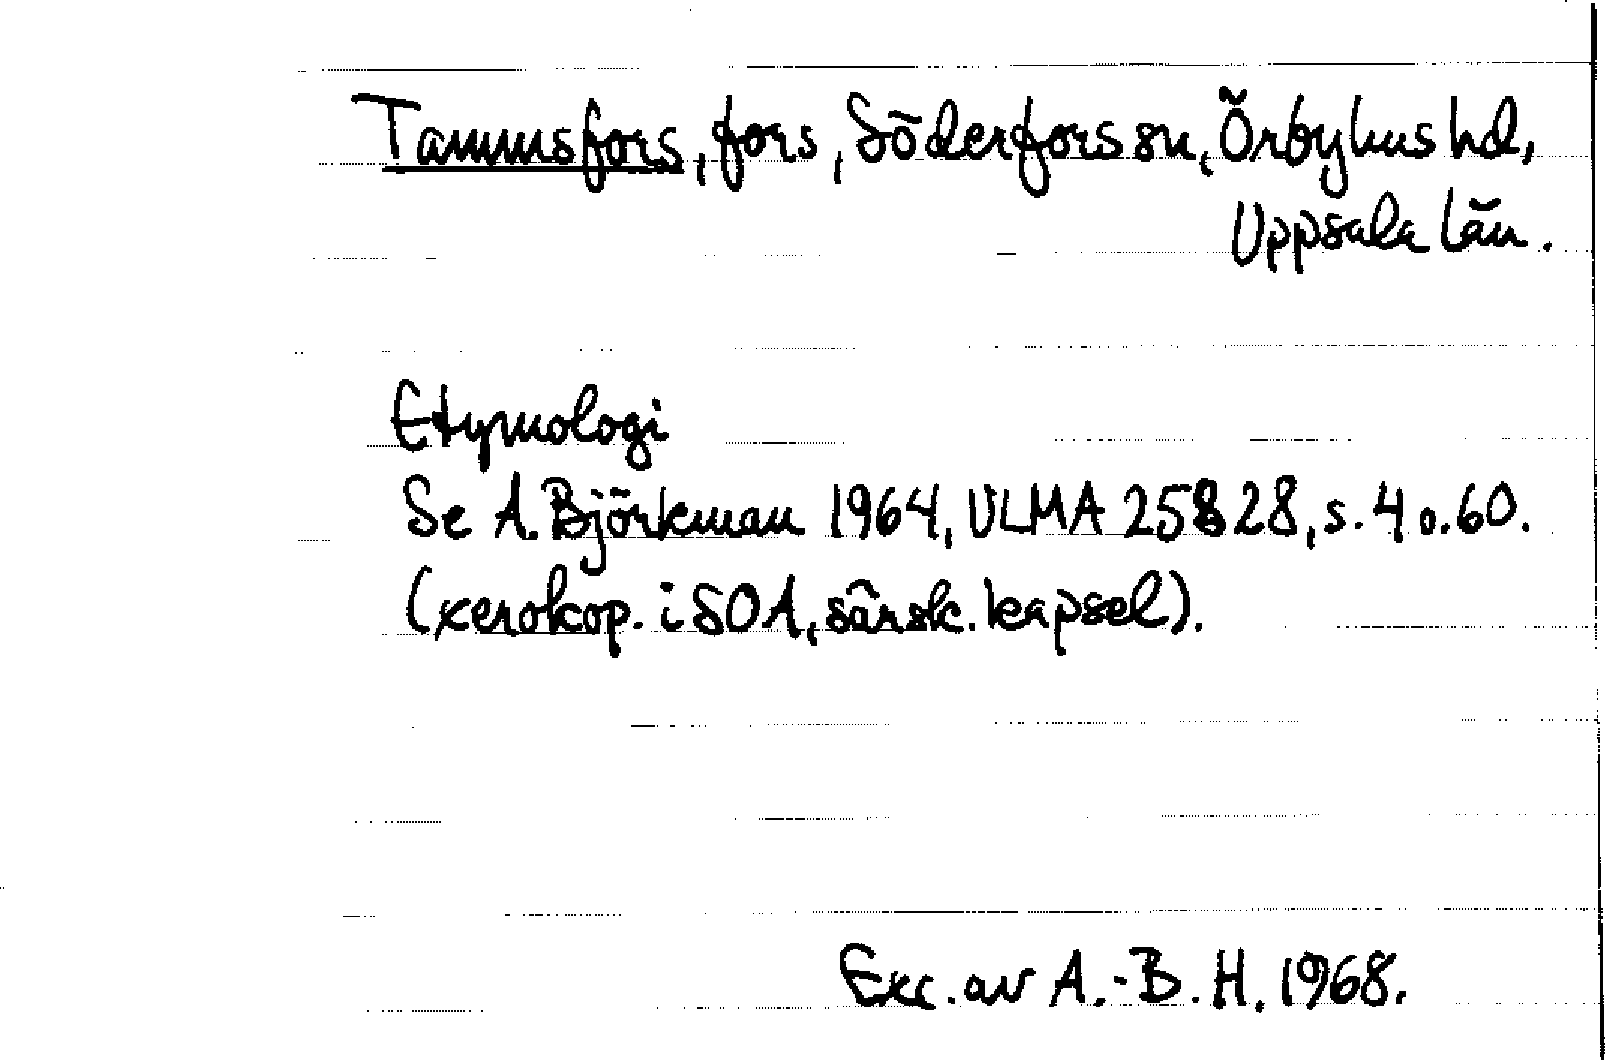 Tammsfors, fors, Söderfors sn, Örbyhus hd,
Uppsala län.
Etymologi
Se A. Björkman 1964, ULMA 25828, s. 4 o. 60.
(xerokop. i SOA, särsk. kapsel).
Exc. av A.-B. H. 1968.